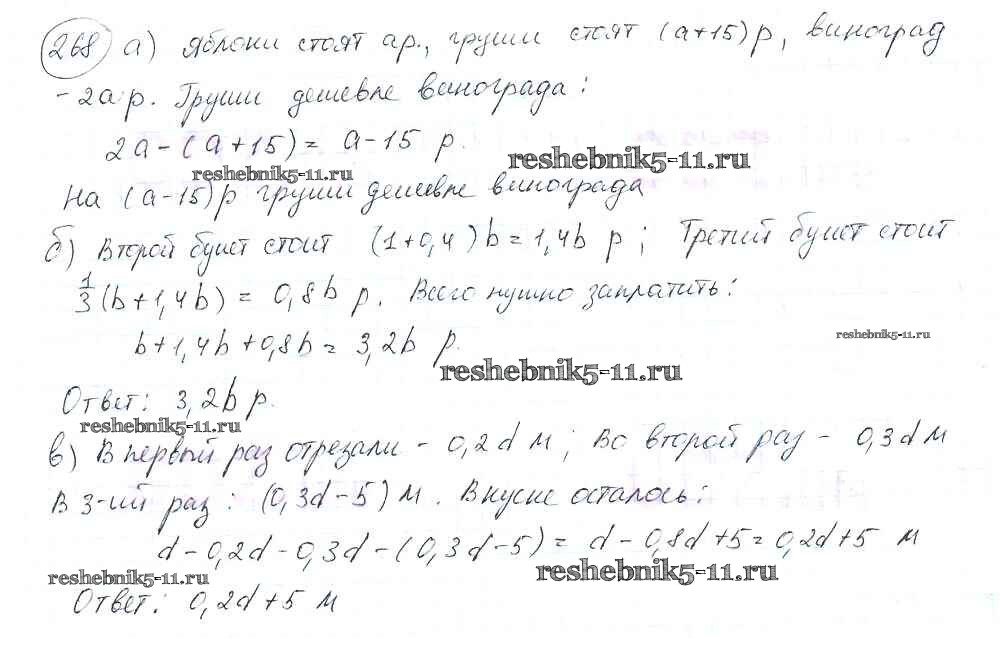 268 а) Яблоки стоят а р., груши стоят (а+15) р, виноград
- 2а р. Груши дешевле винограда:
2а - (а + 15) = а - 15 р.
reshebnik5-11.ru
reshebnik5-11.ru
На (а-15) р груши дешевле винограда
б) Второй букет стоит (1+0,4)b = 1,4b р; Третий букет стоит
1/3 (b + 1,4b) = 0,8b р. Всего нужно заплатить:
reshebnik5-11.ru
b + 1,4b + 0,8b = 3,2b р.
reshebnik5-11.ru
Ответ: 3,2b р.
reshebnik5-11.ru
в) В первый раз отрезали - 0,2d м; Во второй раз - 0,3d м
В 3-ий раз: (0,3d - 5) м. В куске осталось:
d - 0,2d - 0,3d - (0,3d - 5) = d - 0,8d + 5 = 0,2d + 5 м
reshebnik5-11.ru
reshebnik5-11.ru
Ответ: 0,2d + 5 м